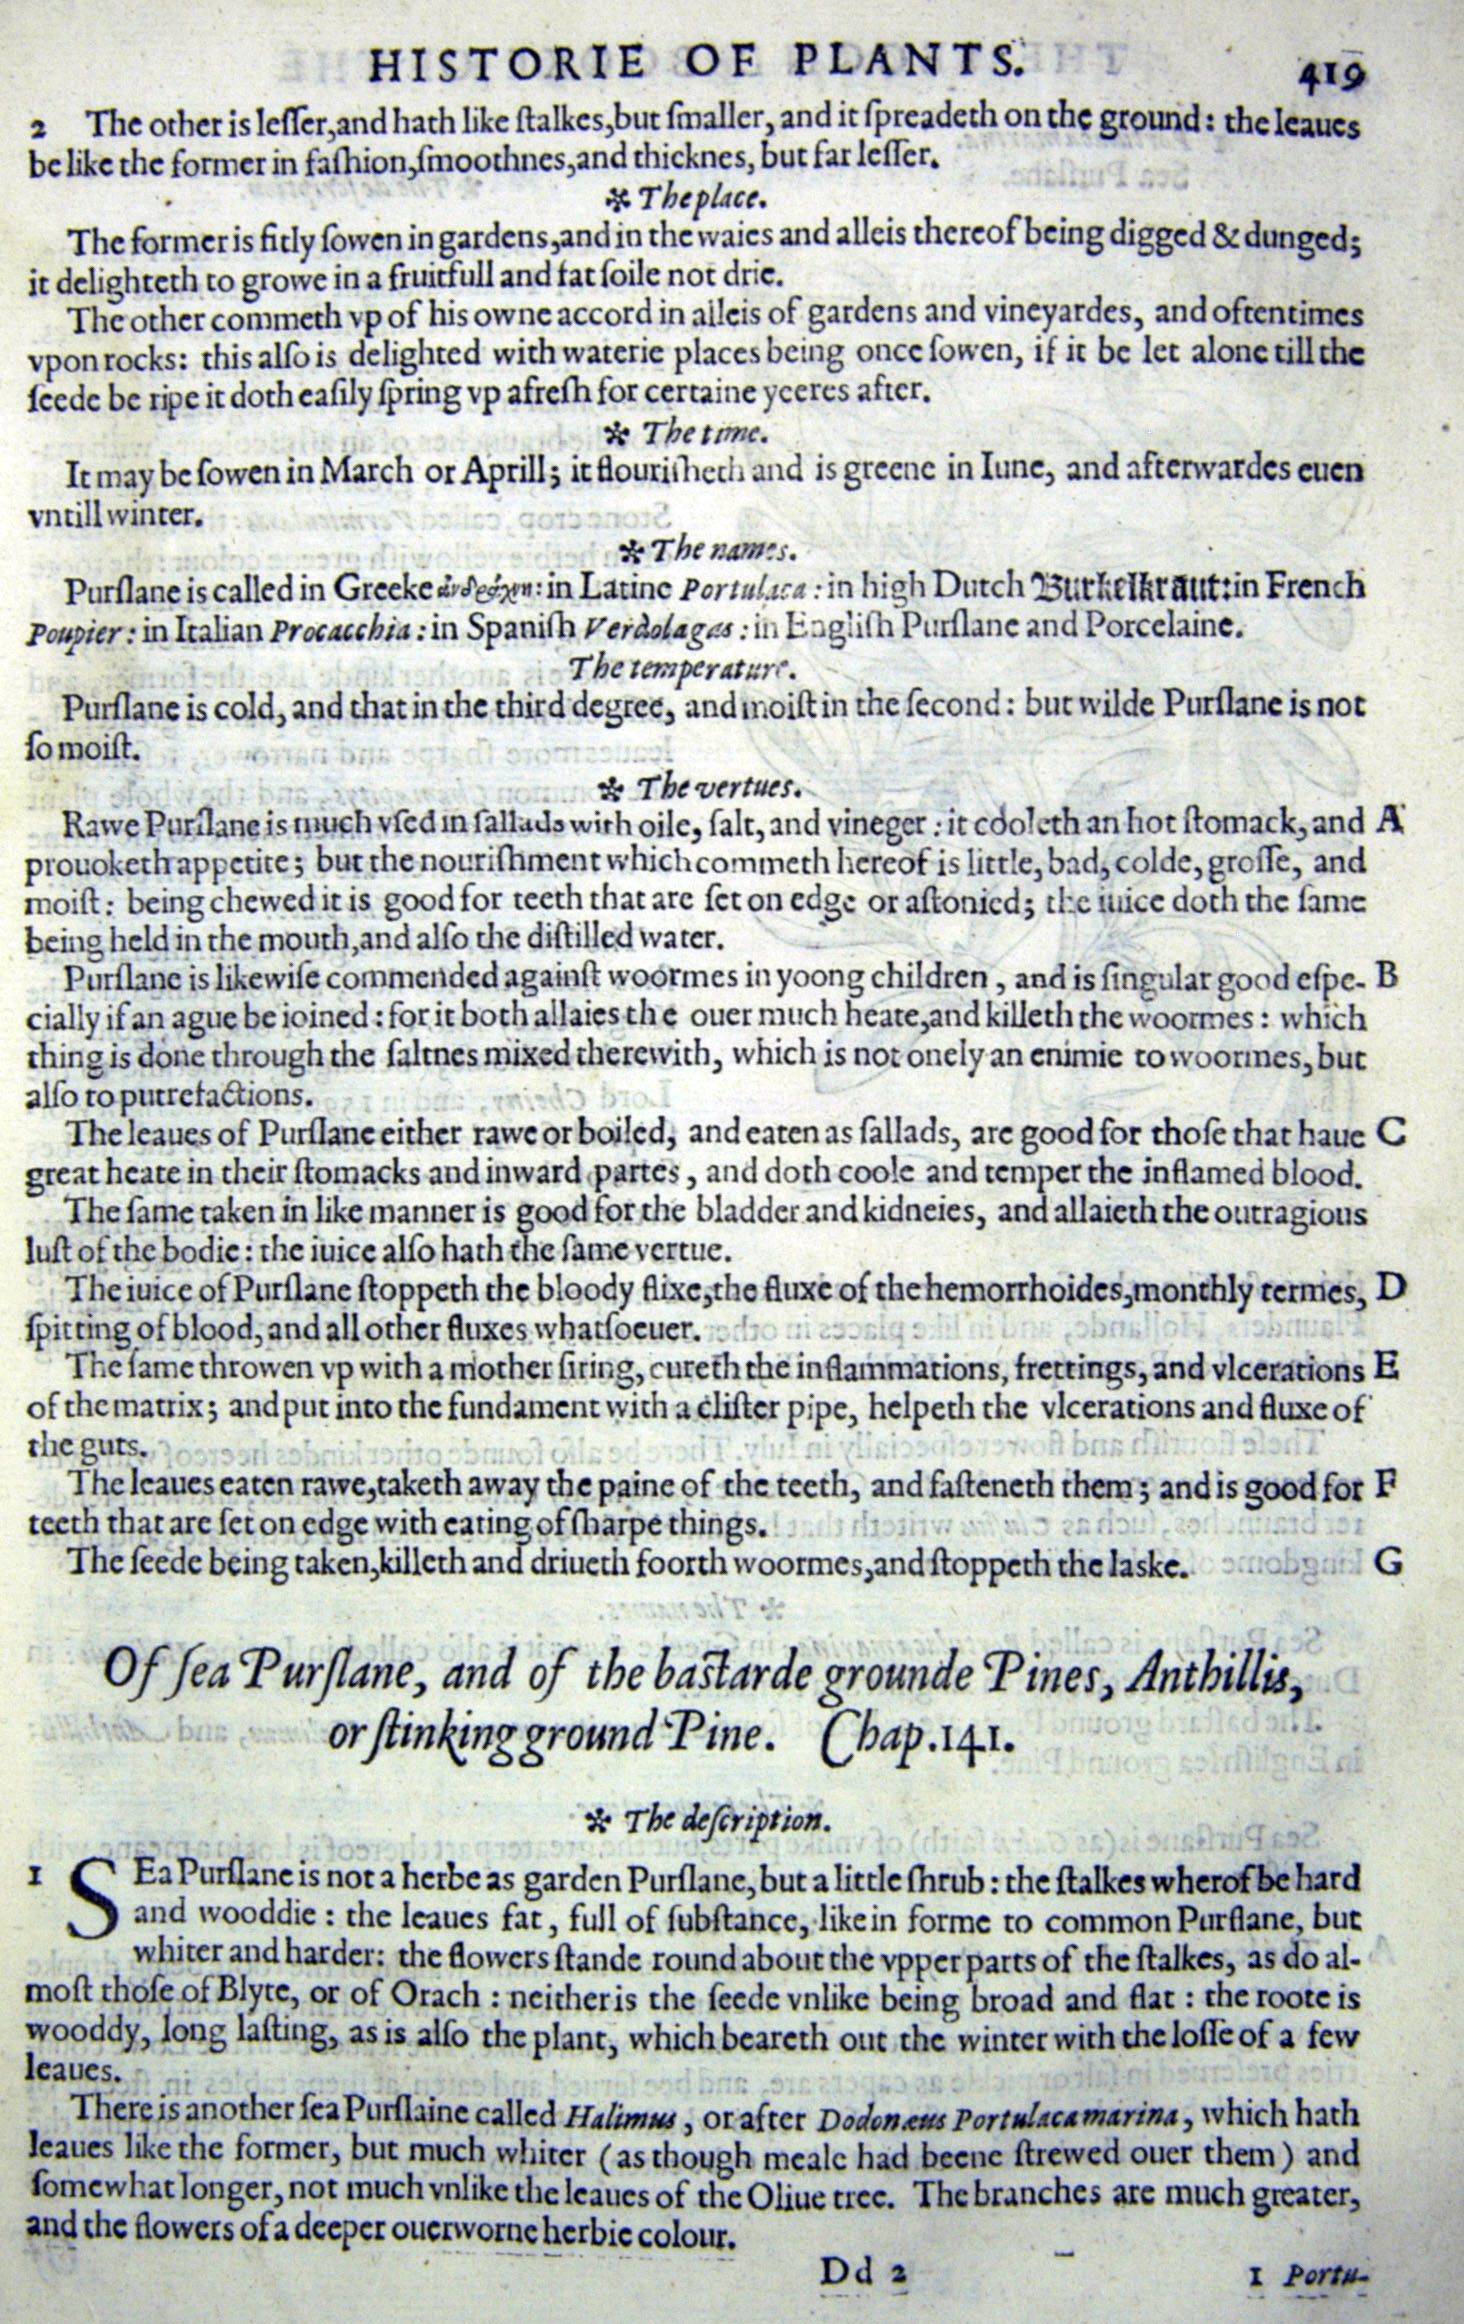 HISTORIE OF PLANTS. 419
2 The other is leſſer,and hath like ſtalkes,but ſmaller, and it ſpreadeth on the ground: the leaues
be like the former in faſhion,ſmoothnes,and thicknes, but far leſſer.
✲ The place.
The former is fitly ſowen in gardens,and in the waies and alleis thereof being digged & dunged;
it delighteth to growe in a fruitfull and fat ſoile not drie.
The other commeth vp of his owne accord in alleis of gardens and vineyardes, and oftentimes
vpon rocks: this alſo is delighted with waterie places being once ſowen, if it be let alone till the
ſeede be ripe it doth eaſily ſpring vp afreſh for certaine yeeres after.
✲ The time.
It may be ſowen in March or Aprill; it flouriſheth and is greene in Iune, and afterwardes euen
vntill winter.
✲ The names.
Purſlane is called in Greeke ἀνδράχνη: in Latine Portulaca: in high Dutch Burkelkraut: in French
Poupier: in Italian Procacchia: in Spaniſh Verdolagas: in Engliſh Purſlane and Porcelaine.
The temperature.
Purſlane is cold, and that in the third degree, and moiſt in the ſecond: but wilde Purſlane is not
ſo moiſt.
✲ The vertues.
Rawe Purſlane is much vſed in ſallads with oile, ſalt, and vineger: it cooleth an hot ſtomack, and A
prouoketh appetite; but the nouriſhment which commeth hereof is little, bad, colde, groſſe, and
moiſt: being chewed it is good for teeth that are ſet on edge or aſtonied; the iuice doth the ſame
being held in the mouth,and alſo the diſtilled water.
Purſlane is likewiſe commended againſt woormes in yoong children, and is ſingular good eſpe- B
cially if an ague be ioined: for it both allaies the ouer much heate,and killeth the woormes: which
thing is done through the ſaltnes mixed therewith, which is not onely an enimie to woormes, but
alſo to putrefactions.
The leaues of Purſlane either rawe or boiled, and eaten as ſallads, are good for thoſe that haue C
great heate in their ſtomacks and inward partes, and doth coole and temper the inflamed blood.
The ſame taken in like manner is good for the bladder and kidneies, and allaieth the outragious
luſt of the bodie: the iuice alſo hath the ſame vertue.
The iuice of Purſlane ſtoppeth the bloody flixe,the fluxe of the hemorrhoides,monthly termes, D
ſpitting of blood, and all other fluxes whatſoeuer.
The ſame throwen vp with a mother ſiring, cureth the inflammations, frettings, and vlcerations E
of the matrix; and put into the fundament with a cliſter pipe, helpeth the vlcerations and fluxe of
the guts.
The leaues eaten rawe,taketh away the paine of the teeth, and faſteneth them; and is good for F
teeth that are ſet on edge with eating of ſharpe things.
The ſeede being taken,killeth and driueth foorth woormes,and ſtoppeth the laske. G
Of ſea Purſlane, and of the baſtarde grounde Pines, Anthillis,
or ſtinking ground Pine. Chap.141.
✲ The deſcription.
1 SEa Purſlane is not a herbe as garden Purſlane, but a little ſhrub: the ſtalkes wherof be hard
and wooddie: the leaues fat, full of ſubſtance, like in forme to common Purſlane, but
whiter and harder: the flowers ſtande round about the vpper parts of the ſtalkes, as do al-
moſt thoſe of Blyte, or of Orach: neither is the ſeede vnlike being broad and flat: the roote is
wooddy, long laſting, as is alſo the plant, which beareth out the winter with the loſſe of a few
leaues.
There is another ſea Purſlaine called Halimus, or after Dodonæus Portulaca marina, which hath
leaues like the former, but much whiter (as though meale had beene ſtrewed ouer them) and
ſomewhat longer, not much vnlike the leaues of the Oliue tree. The branches are much greater,
and the flowers of a deeper ouerworne herbie colour.
Dd 2 1 Portu-